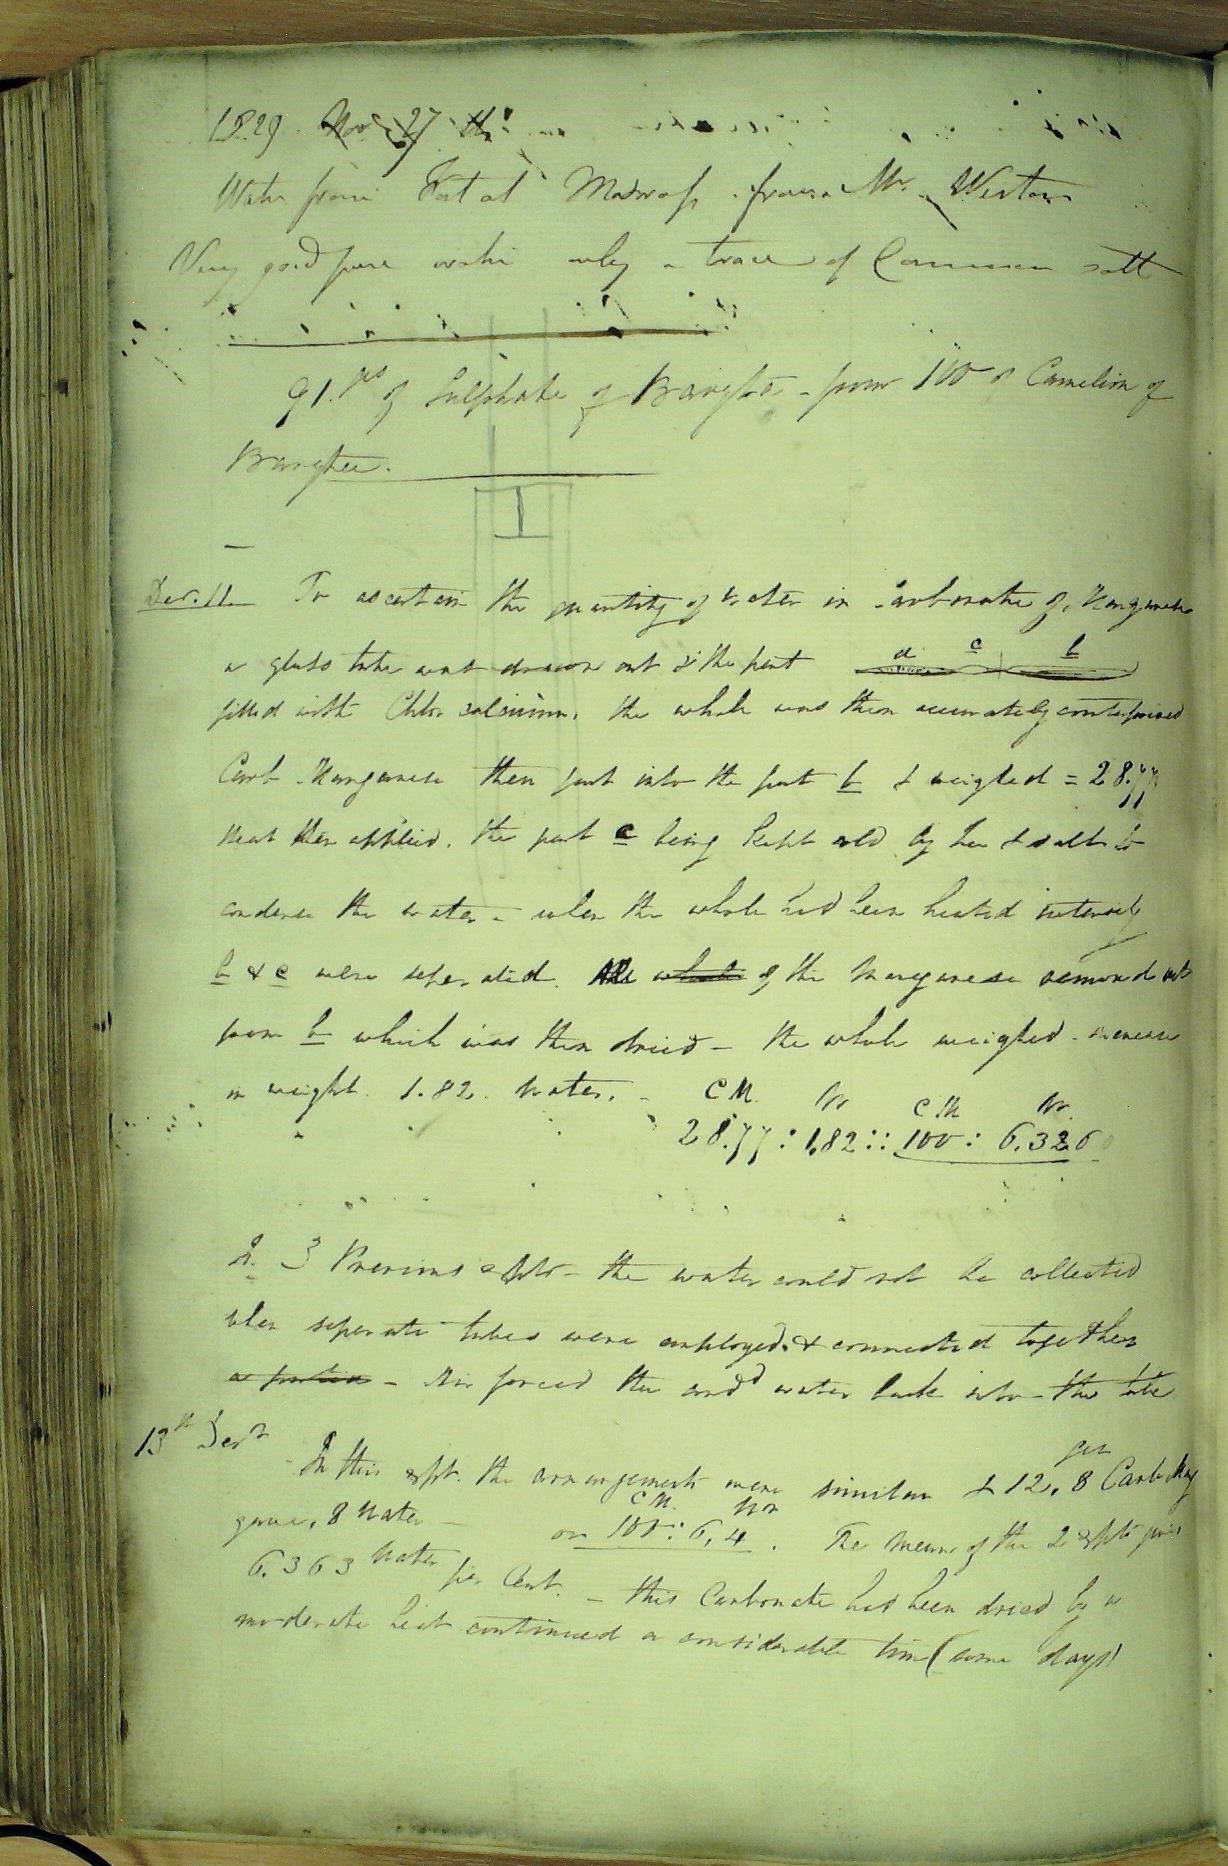 1829. Nov 27th
Water from Fort at Madrass from Mr. Weston
Very good pure water only a trace of Common salt
91. grs of Sulphate of Barytes - from 100 of Camelion of
Barytes.
Dec. 11. To ascertain the quantity of water in Carbonate of Manganese
a glass tube was drawn out & the part a c b
filled with Chlor calcium. the whole was then accurately counterpoised
Carb. Manganese then put into the part b & weighed = 28.77
Heat then applied. the part c being kept cold by Ice & salt to
condense the water - when the whole had been heated intensely
b & c were seperated. All whole of the Manganese removed out
from b which was then dried - the whole weighed - increase
in weight. 1.82. Water. - C M. W C M W.
28.77 : 1,82 :: 100 : 6.326
In 3 Previous expts - the water could not be collected
when seperate tubes were employed & connected together
- Air forced the cond d water back into the tube
13th Decr In this expt. the arrangements were similar & 12,8 grs Carb Mang
gave ,8 Water - or C M. 100 : Wr 6,4. The mean of the 2 expts gives
6.363 Water per Cent. - this Carbonate had been dried by a
moderate heat continued a considerable time (some days)